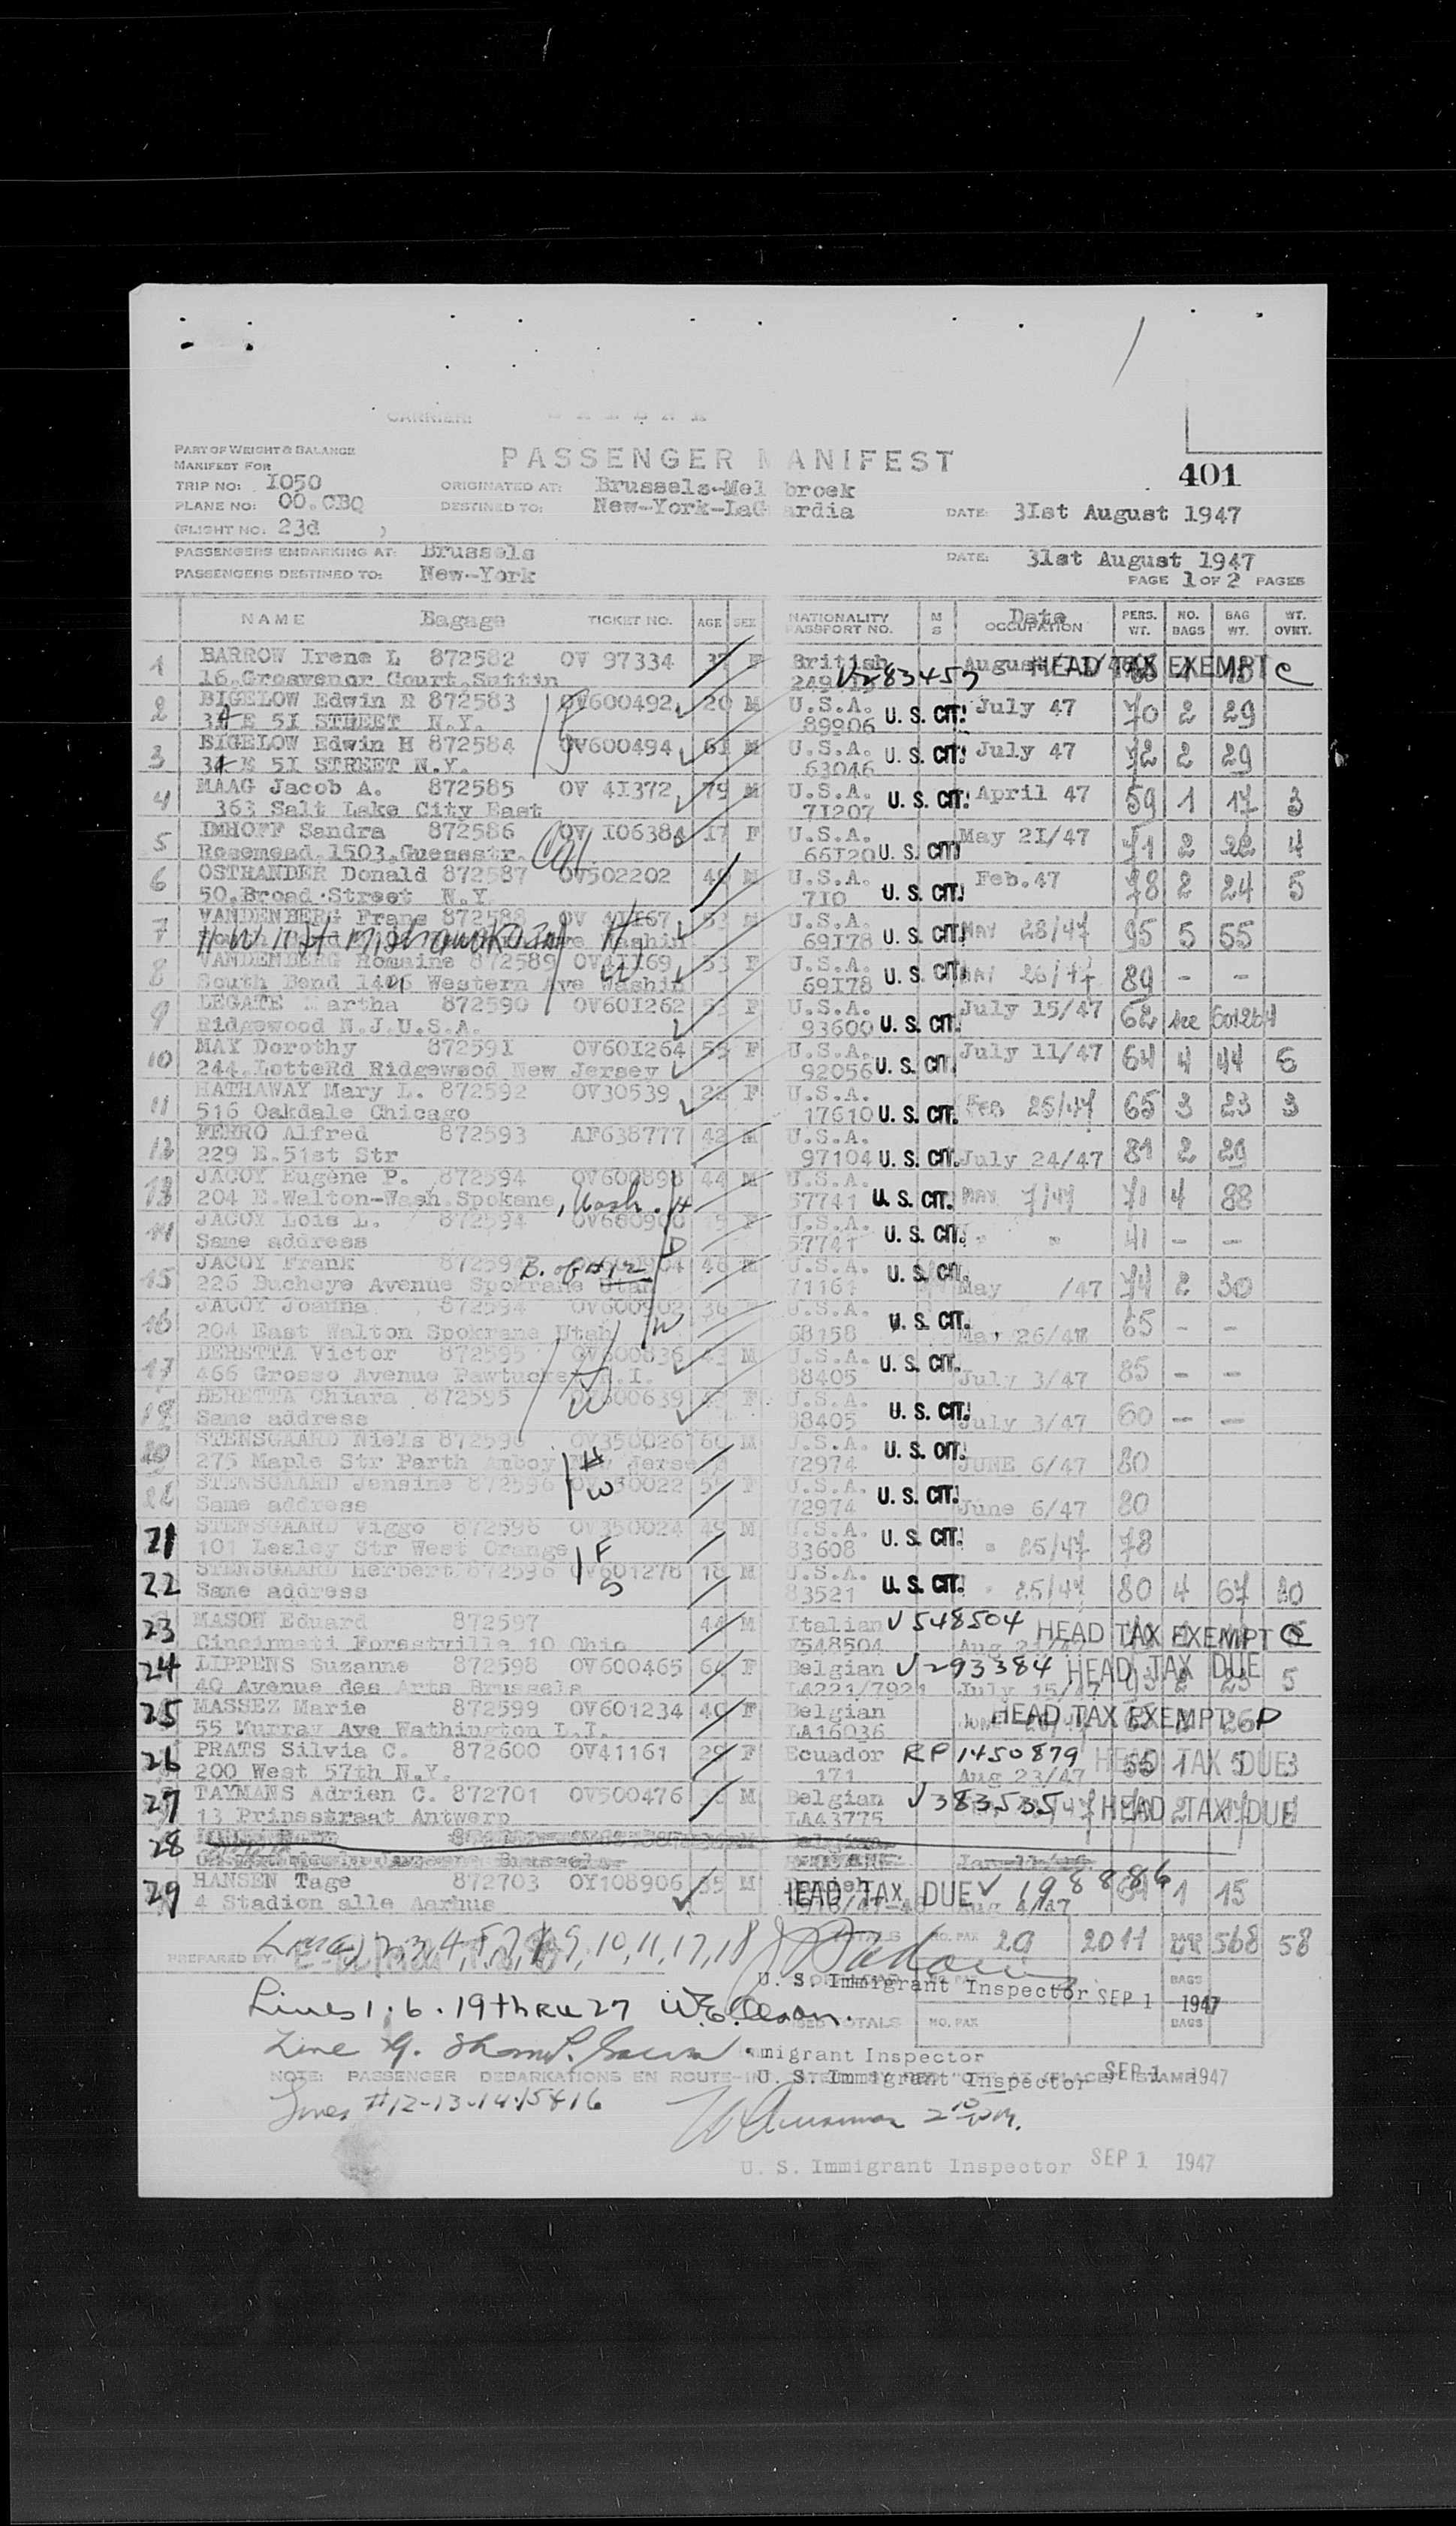 CARRIER:
PART OF WEIGHT & BALANCE
MANIFEST FOR
PASSENGER MANIFEST
401
TRIP NO: I050
ORIGINATED AT: Brussels-Mel broek
PLANE NO: OO.CBQ
DESTINED TO: New-York-LaG ardia
DATE: 3Ist August 1947
(FLIGHT NO: 23d )
PASSENGERS EMBARKING AT: Brussels
DATE: 31st August 1947
PASSENGERS DESTINED TO: New-York
PAGE 1 OF 2 PAGES
NAME Bagage TICKET NO. AGE SEX NATIONALITY PASSPORT NO. M S Date OCCUPATION PERS. WT. NO. BAGS BAG WT. WT. OVHT.
1 BARROW Irene L 872582 OV 97334 37 F British V283453 August HEAD TAX EXEMPT C
16.Grosvenor Court.Suttin
2 BIGELOW Edwin R 872583 OV600492 20 M U.S.A. U. S. CIT. July 47 70 2 29
34 E 5I STREET N.Y. 89906
3 BIGELOW Edwin H 872584 OV600494 61 M U.S.A. U. S. CIT. July 47 72 2 29
34 E 5I STREET N.Y. 63046
4 MAAG Jacob A. 872585 OV 4I372 79 M U.S.A. U. S. CIT. April 47 59 1 17 3
363 Salt Lake City East 7I207
5 IMHOFF Sandra 872586 OV I06384 17 F U.S.A. May 2I/47 51 2 22 4
Rosemead.1503.Guessstr. 66I20 U. S. CIT.
6 OSTRANDER Donald 872587 OV502202 49 M U.S.A. U. S. CIT. Feb.47 78 2 24 5
50.Broad Street N.Y. 710
7 VANDENBERG Frans 872588 OV 4II67 53 M U.S.A. U. S. CIT. MAY 28/47 95 5 55
69I78
8 VANDENBERG Romaine 872589 OV4II69 53 F U.S.A. U. S. CIT. MAY 26/47 89 - -
South Bend 1406 Western Ave Washin 69I78
9 LEGATE Martha 872590 OV60I262 53 F U.S.A. July 15/47 62 see 601264
Ridgewood N.J.U.S.A. 93600 U. S. CIT.
10 MAY Dorothy 872591 OV601264 55 F U.S.A. July 11/47 64 4 44 6
244.LotteRd Ridgewood New Jersey 92056 U. S. CIT.
11 HATHAWAY Mary L. 872592 OV30539 22 F U.S.A. Feb 25/47 65 3 23 3
516 Oakdale Chicago 17610 U. S. CIT.
12 FERRO Alfred 872593 AF638777 42 M U.S.A. 81 2 29
229 E.51st Str 97104 U. S. CIT. July 24/47
13 JACOY Eugène P. 872594 OV600898 44 M U.S.A. MAY 7/47 71 4 88
204 E.Walton-Wash.Spokane, Wash. H 57741 U. S. CIT.
14 JACOY Lois L. 872594 OV600900 F U.S.A. U. S. CIT. " " 41 - -
Same address D 57741
15 JACOY Frank 872594 B. of #12 48 M U.S.A. U. S. CIT. May /47 74 2 30
226 Bucheye Avenue Spokrane Utah 71161
16 JACOY Joanna 872594 OV600902 36 U.S.A. U. S. CIT. May 26/47 65 - -
204 East Walton Spokrane Utah W 68158
17 BERETTA Victor 872595 OV600636 M U.S.A. U. S. CIT. July 3/47 85 - -
466 Grosso Avenue Pawtucket R.I. H 88405
BERETTA Chiara 872595 OV600639 F U.S.A. U. S. CIT. July 3/47 60 - -
Same address W 88405
STENSGAARD Niels 872596 OV350026 60 M U.S.A. U. S. CIT. JUNE 6/47 80
275 Maple Str Perth Amboy New Jerse H 72974
STENSGAARD Jensine 872596 OV350022 F U.S.A. U. S. CIT. June 6/47 80
Same address W 72974
21 STENSGAARD Viggo 872596 OV350024 49 M U.S.A. U. S. CIT. " 25/47 78
101 Lesley Str West Orange F 83608
22 STENSGAARD Herbert 872596 OV601278 18 M U.S.A. U. S. CIT. " 25/47 80 4 67 20
Same address S 83521
23 MASON Eduard 872597 44 M Italian V548504 HEAD TAX EXEMPT C
Cincinnati Forestville 10 Ohio V548504
24 LIPPENS Suzanne 872598 OV600465 64 F Belgian V293384 HEAD TAX DUE 5
40 Avenue des Arts Brussels LA221/7921 July 15/47
25 MASSEZ Marie 872599 OV601234 40 F Belgian HEAD TAX EXEMPT P
55 Murray Ave Wathington L.I. LA16036
26 PRATS Silvia C. 872600 OV41161 29 F Ecuador RP 1450879 HEAD TAX DUE
200 West 57th N.Y. 171 Aug 23/47
27 TAYMANS Adrien C. 872701 OV500476 M Belgian V383535 HEAD TAX DUE
13 Prinsstraat Antwerp LA43775
28
29 HANSEN Tage 872703 OY108906 35 M HEAD TAX DUE V 198886 1 15
4 Stadion alle Aarhus Aug 4/47
TOTALS NO. PAX 29 2011 568 58
PREPARED BY:
Lines 2, 3, 4, 5, 7, 8, 9, 10, 11, 17, 18
U. S. Immigrant Inspector SEP 1 1947
Lines 1. 6. 19 thru 27 W.E. Olson.
TOTALS NO. PAX BAGS
Immigrant Inspector
NOTE: PASSENGER DEBARKATIONS EN ROUTE
U. S. Immigrant Inspector SEP 1 1947
Lines #12-13-14-15&16
U. S. Immigrant Inspector SEP 1 1947